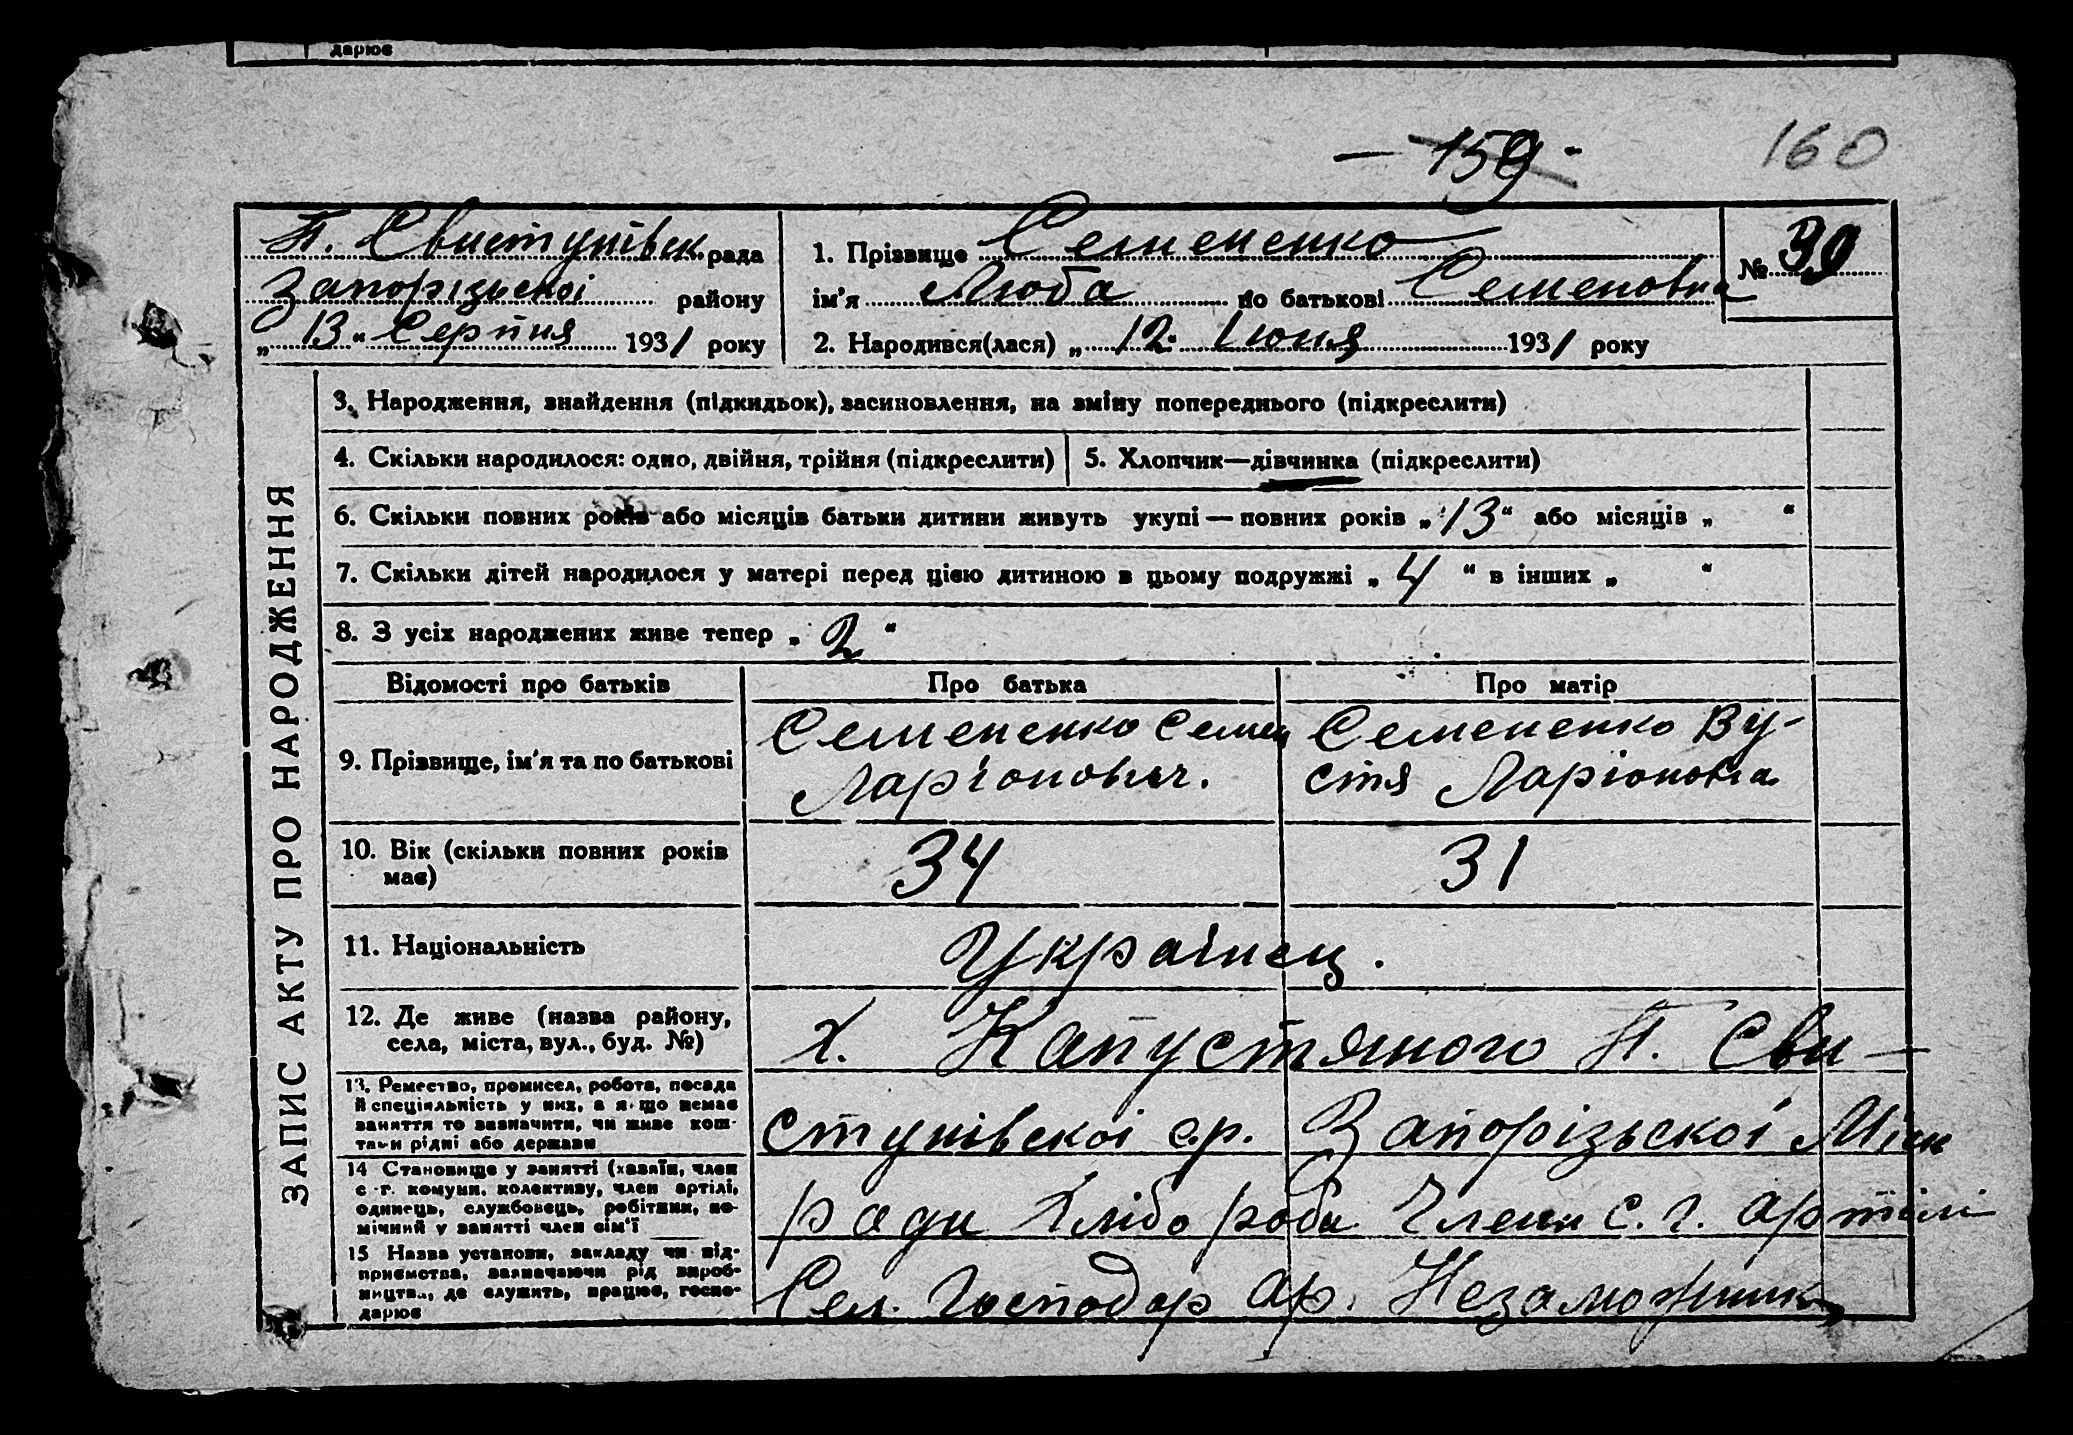 дарює
— 159 -
160
П. Свистунівськ. рада
Запорізької району
„ 13 “ Серпня 1931 року
1. Прізвище Семененко
ім'я Люба по батькові Семеновна
2. Народився(лася) „ 12 “ Июня 1931 року
№ 39
ЗАПИС АКТУ ПРО НАРОДЖЕННЯ
3. Народження, знайдення (підкидьок), засиновлення, на зміну попереднього (підкреслити)
4. Скільки народилося: одно, двійня, трійня (підкреслити)
5. Хлопчик—дівчинка (підкреслити)
6. Скільки повних років або місяців батьки дитини живуть укупі — повних років „ 13 “ або місяців „ “
7. Скільки дітей народилося у матері перед цією дитиною в цьому подружжі „ 4 “ в інших „ “
8. З усіх народжених живе тепер „ 2 “
Відомості про батьків
Про батька
Про матір
9. Прізвище, ім'я та по батькові
Семененко Семен
Ларіонович.
Семененко Ву-
стя Ларіоновна
10. Вік (скільки повних років
має)
34
31
11. Національність
Українец.
12. Де живе (назва району,
села, міста, вул., буд. №)
х. Капустяного П. Сви-
13. Ремество, промисел, робота, посада
й спеціяльність у них, а якщо немає
заняття то зазначити, чи живе кош-
тами рідні або держави
ступівскої с.р. Запорізьскої Міск
14 Становище у занятті (хазяїн, член
с.-г. комуни, колективу, член артілі,
одинець, службовець, робітник, по-
мічний у занятті член сім'ї
ради Хліборобы Члени С. г. артілі
15 Назва установи, закладу чи під-
приємства, зазначаючи рід вироб-
ництва, де служить, працює, госпо-
дарює
Сел. Господар ар. Незаможник